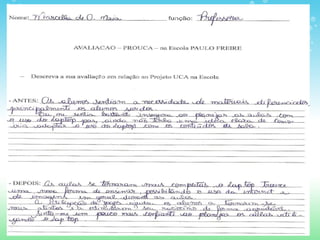 Nome: Marcella de O. Maia função: Professora
AVALIACAO – PROUCA – na Escola PAULO FREIRE
– Descreva a sua avaliação em relação ao Projeto UCA na Escola
- ANTES: Os alunos sentiam a necessidade de materiais diferenciados
principalmente os alunos surdos.
Eu, me sentia bastante insegura ao planejar as aulas com
o uso do laptop pois ainda não tinha uma ideia clara de como
iria adaptar o uso do laptop com os conteúdos de sala.
- DEPOIS: As aulas se tornaram mais completas o laptop trouxe
uma nova forma de ensinar, possibilitando o uso da internet e
de imagens em geral durante as aulas.
A utilização de jogos ajudou os alunos a tornarem-se
mais atentos e a de forma agradável.
Sinto-me um pouco mais confiante ao planejar as aulas utili-
zando o laptop